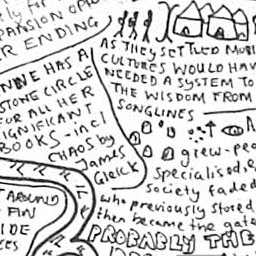 ly for
PANSION OPTO
R ENDING
NNE HAS A
STONE CIRCLE
FOR ALL HER
IGNIFICANT
BOOKS - incl
CHAOS by
James
Gleick
AROUND
FIN
IDE
CES
AS THEY SETTLED MOBI
CULTURES WOULD HAV
NEEDED A SYSTEM TO
THE WISDOM FROM
SONGLINES
A
grew - peo
specialised,
society faded
who previously stored
then became the gate
PROBABLY THE